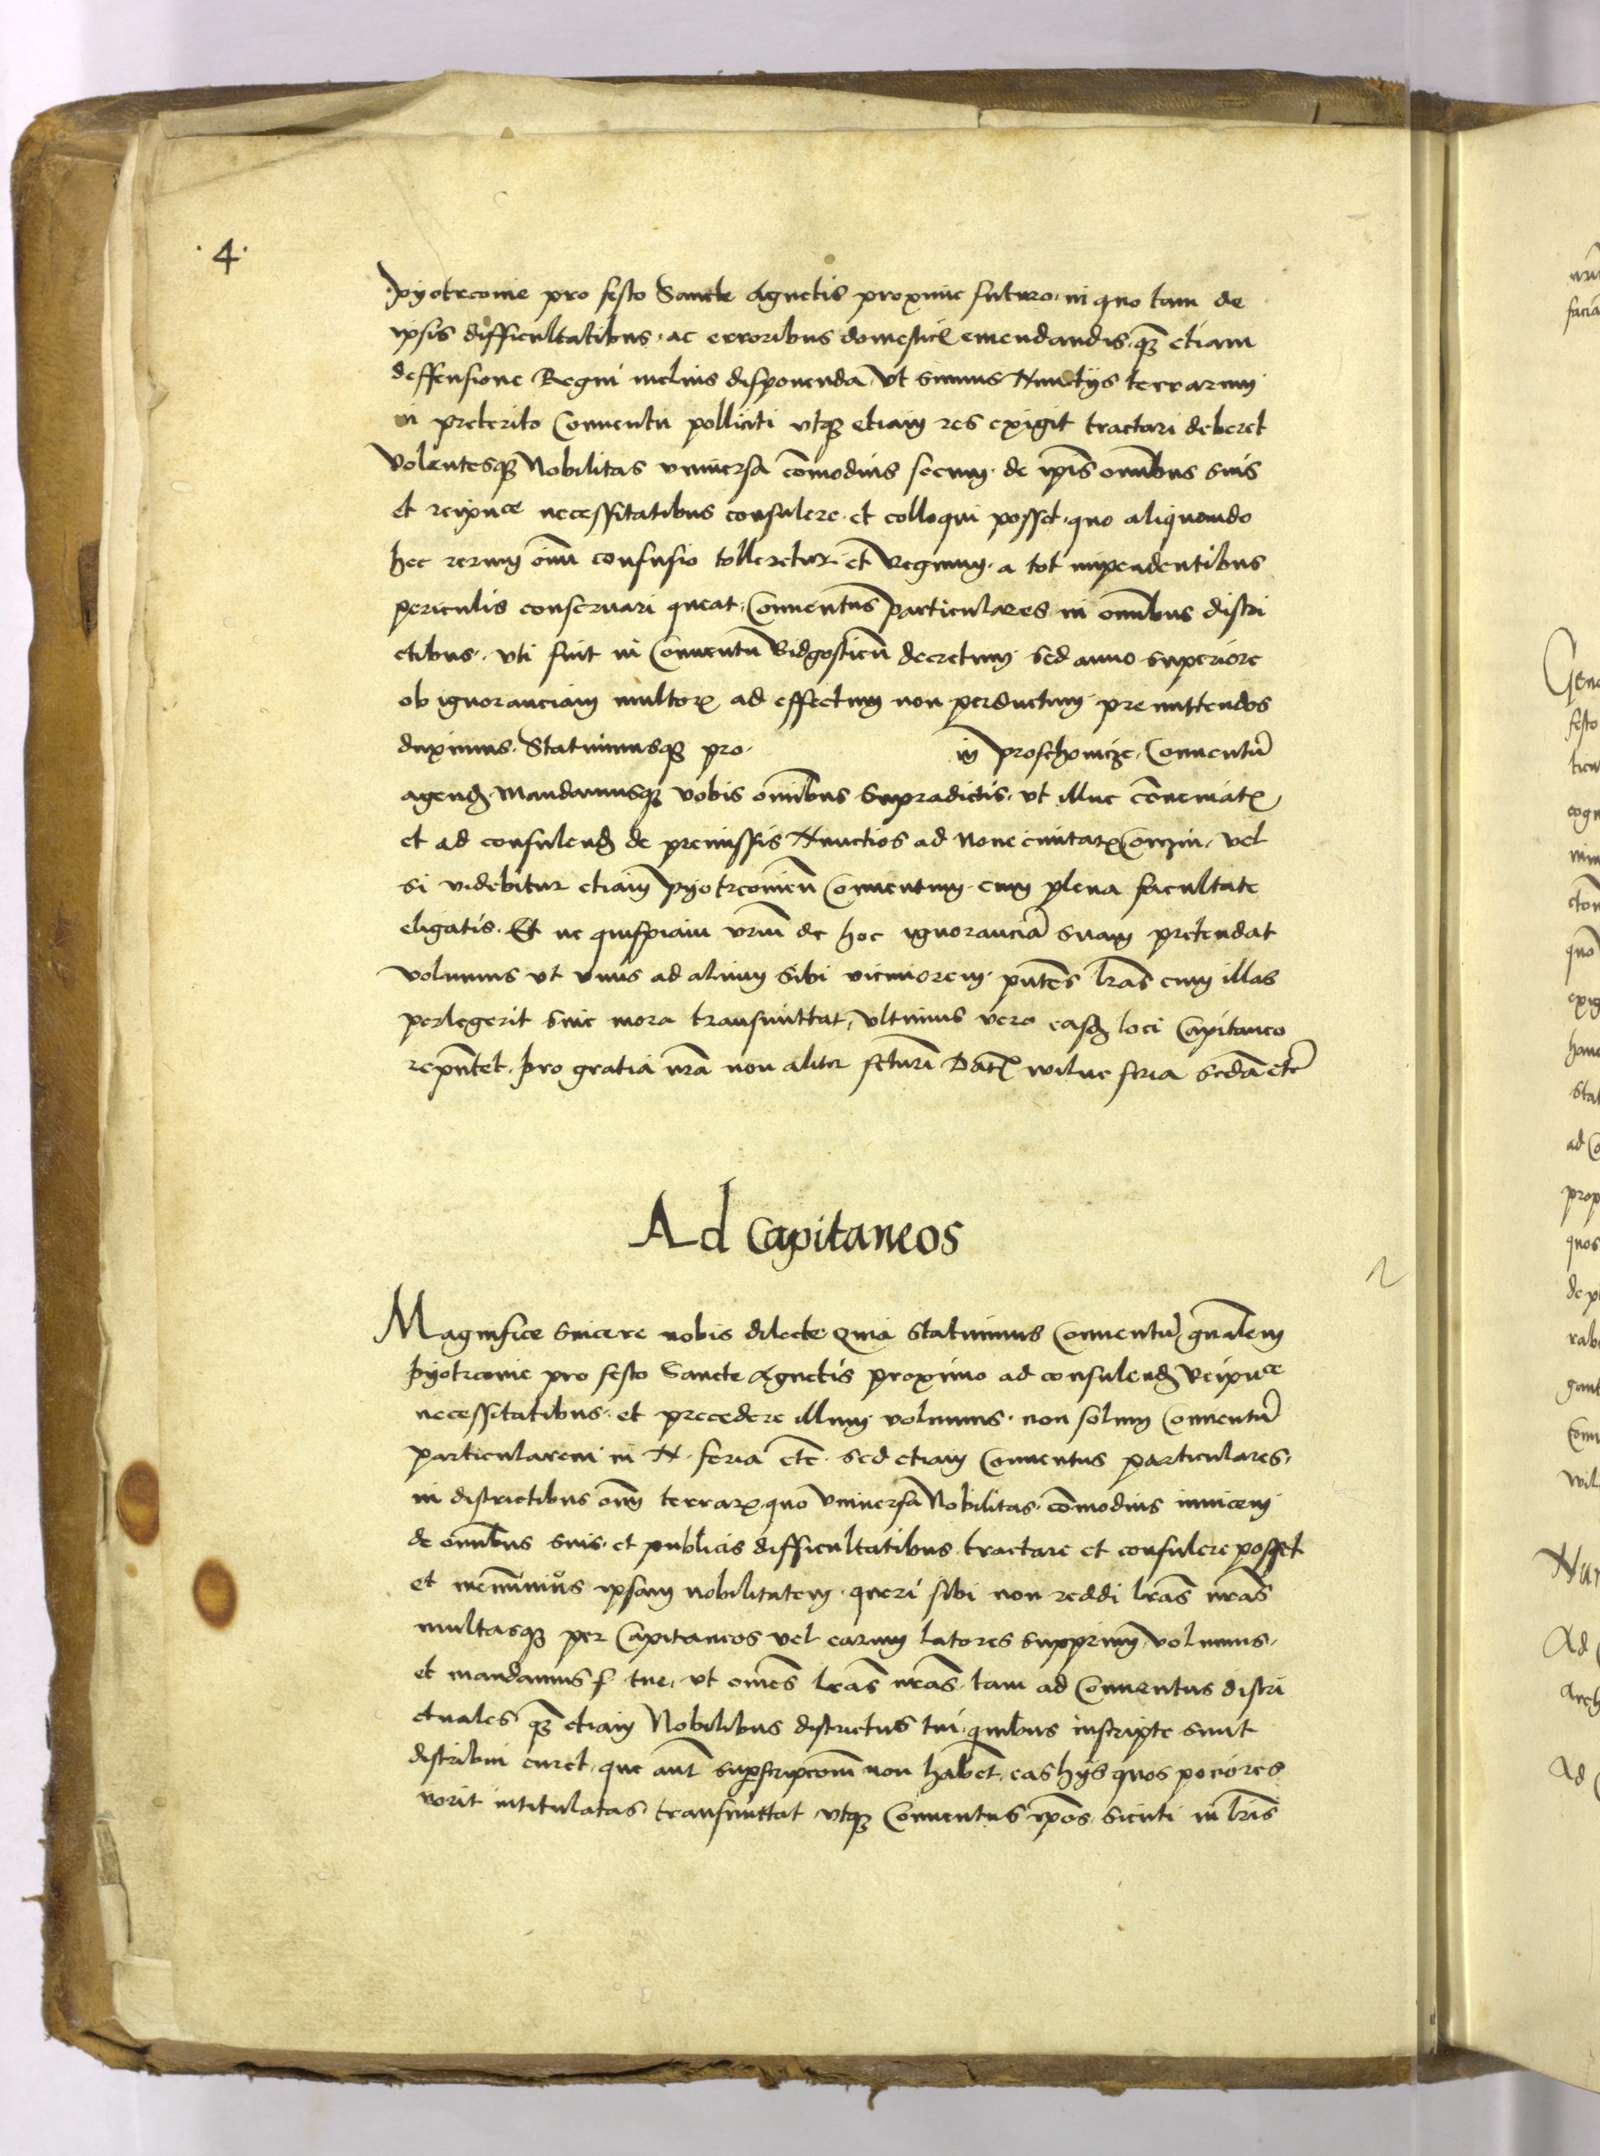 .4.
Pyotrcovie pro festo Sancte Agnetis proxime futuro, in quo tam de
ipsis difficultatibus, ac erroribus domesticꝭ emendandis, qꝫ etiam
deffensione Regni melius disponenda, vt sumus Nunctijs terrarum
in preterito Conuentu polliciti vtqꝫ etiam res exigit tractari deberet
Volentesqꝫ Nobilitas vniuersa com̄odius secum de ip̄is om̄ibus suis
et reipu^ce necessitatibus consulere et colloqui posset, quo aliquando
hec rerum om̄iu confusio tolleretur et Regnum a tot impendentibus
periculis conseruari queat, Conuentus particulares in om̄ibus distri
ctibus, vti fuit in Conuentu Bidgostien̄ decretum, sed anno superiore
ob ignoranciam multorꝝ ad effectum non perductum, premittendos
duximus. Statuimusqꝫ pro in Proschouicze, Conuentū
agend, Mandamusqꝫ vobis om̄ibus supradictis, vt illuc conueniatꝭ
et ad consulend de premissis Nunctios ad Noue ciuitatꝭ Corczin, vel
si videbitur etiam Pyotrcouien̄ Conuentum cum plena facultate
eligatis. Et ne quispiam vrm̄ de hoc ignoranciā suam pretendat
volumus vt vnus ad alium sibi viciniorem pn̄tes lr̄as cum illas
perlegerit sine mora transmittat, vltimus vero easd loci Capitaneo
repn̄tet. Pro gratia nr̄a non aliter fcturi Datꝭ wilne feria scd̄a etc̄
Ad Capitaneos
Magnifice sincere nobis dilecte, Quia statuimus Conuentū gn̄alem
Pyotrcovie pro festo Sancte Agnetis proximo ad consulend Reipu^ce
necessitatibus, et precedere illum volumus, non solum Conuentū
particularem in N. feria etc̄. sed etiam Conuentus particulares,
in districtibus om̄iu terrarꝝ, quo Vniuersa Nobilitas, com̄odius inuicem
de om̄ibus suis, et publicis difficultatibus tractare et consulere posset
et meminimus ipsam nobilitatem, queri sibi non reddi lr̄as nr̄as
multasqꝫ per Capitaneos vel earum latores supprimi, volumus,
et mandamus f. tue, vt om̄es lr̄as nr̄as, tam ad Conuentus distri
ctuales qꝫ etiam Nobilibus districtus tui, quibus inscripte sunt
distribui curet, que aut̄ superscripcom̄ non haben̄t, eas hijs quos pociores
norit intitulatas transmittat, vtqꝫ Conuentus ip̄os, sicuti in lr̄is